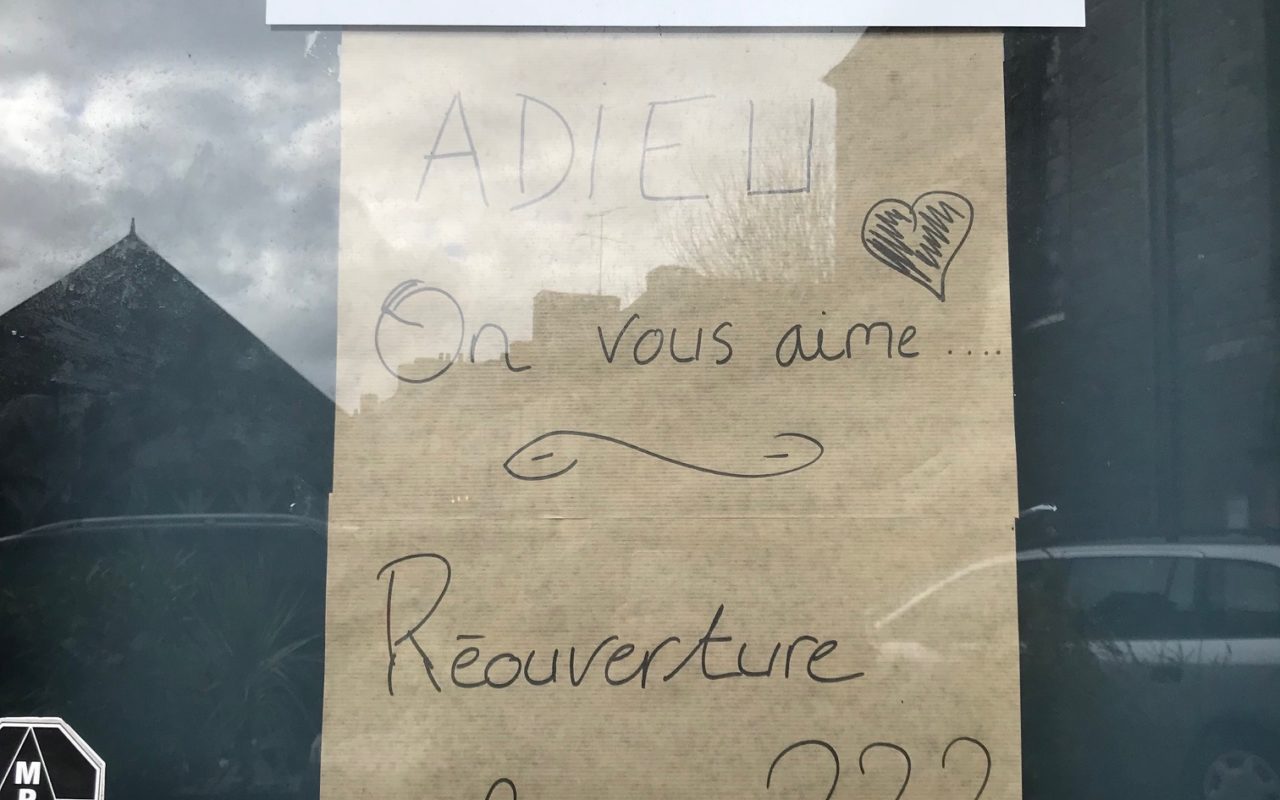 ADIEU
On vous aime ....
Réouverture
???
M